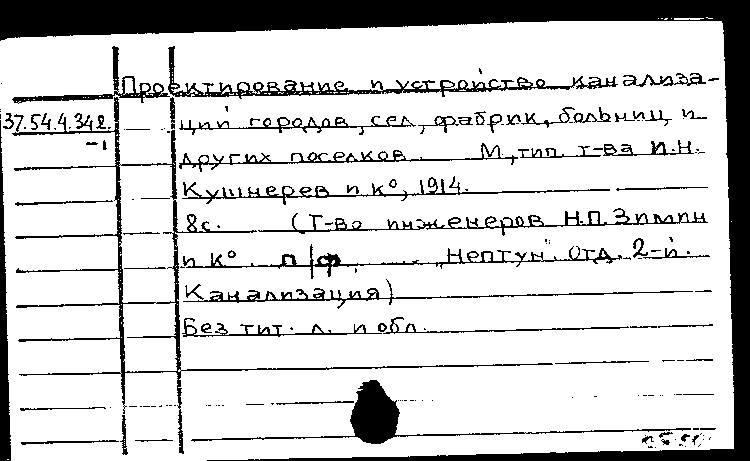 Проектирование и устройство канализа-
37.54.4.342. ций городов, сел, фабрик, больниц и
-1
других поселков. М., тип. т-ва И.Н.
Кушнерев и К°, 1914.
8с. (Т-во инженеров Н.П. Зимин
и К°. п/ф. „Нептун". Отд. 2-й.
Канализация)
Без тит. л. и обл.